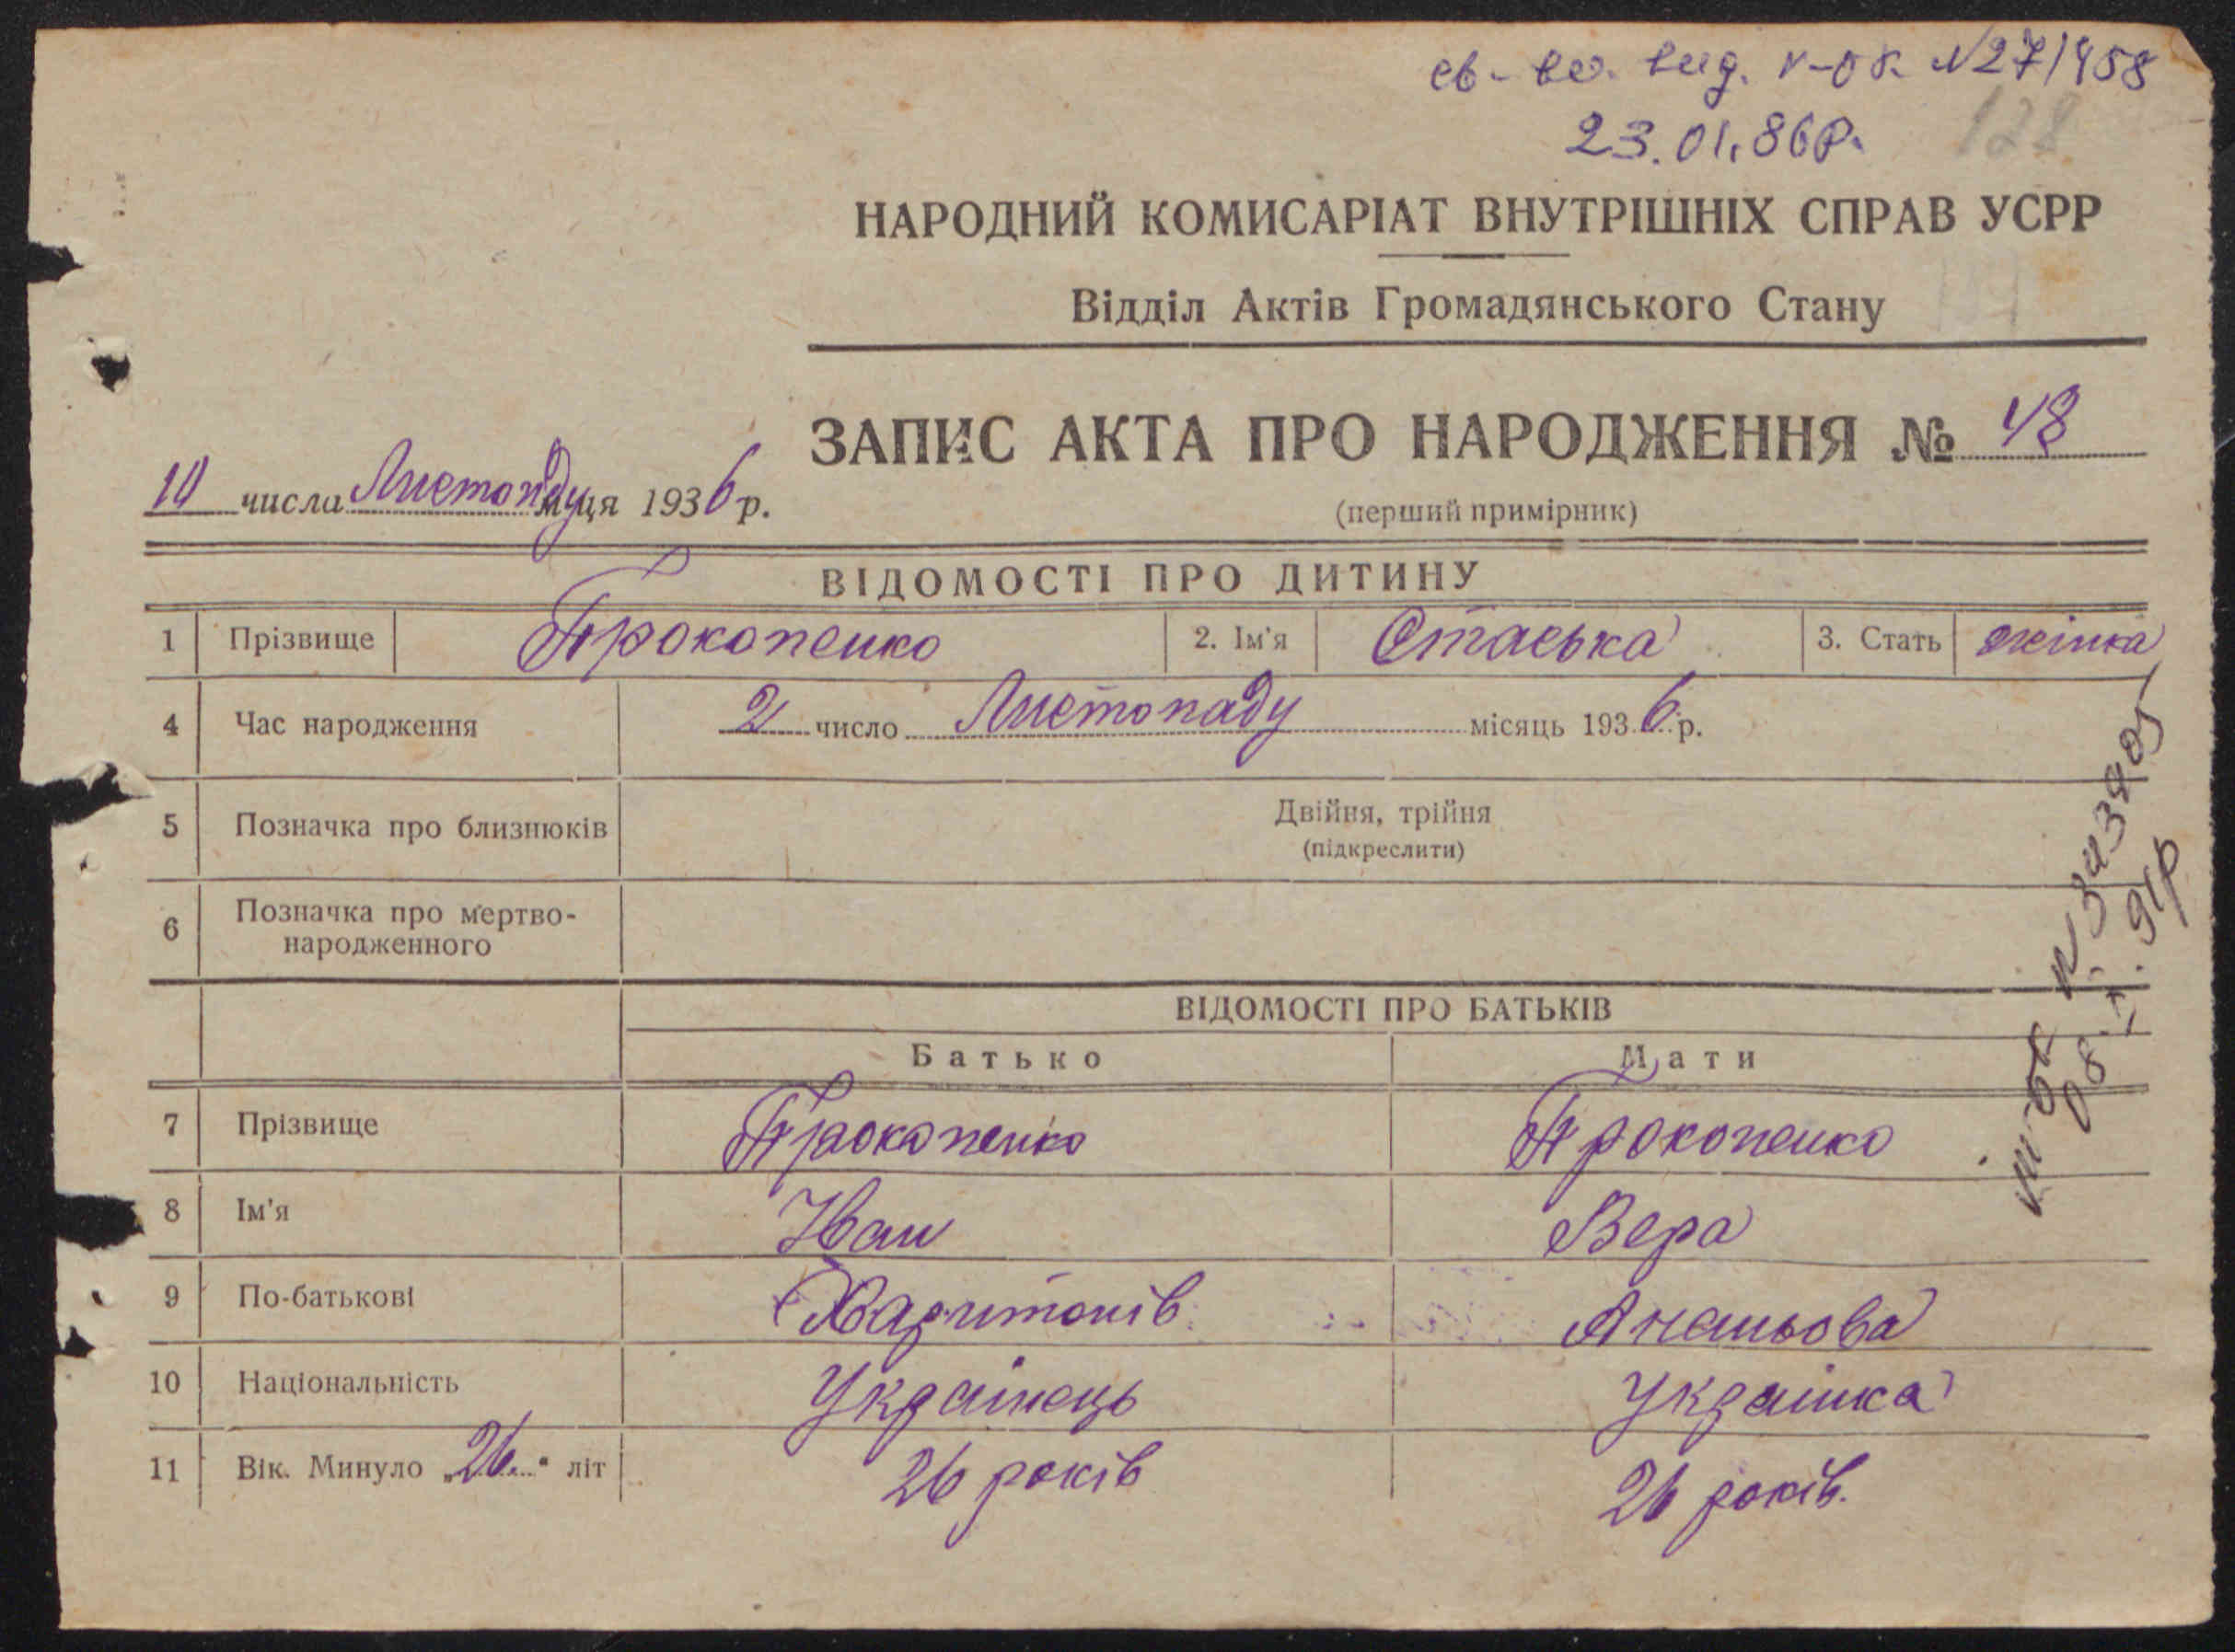 св-во вид. V-ОК №271458
23.01.86р. 128
НАРОДНИЙ КОМИСАРІАТ ВНУТРІШНІХ СПРАВ УСРР
Відділ Актів Громадянського Стану
ЗАПИС АКТА ПРО НАРОДЖЕННЯ № 48
10 числа Листопаду м-ця 1936 р.
(перший примірник)
ВІДОМОСТІ ПРО ДИТИНУ
1 Прізвище Прокопенко 2. Ім'я Стаська 3. Стать жінка
4 Час народження 2 число Листопаду місяць 1936 р.
5 Позначка про близнюків Двійня, трійня
(підкреслити)
6 Позначка про мертво-
народженного
ВІДОМОСТІ ПРО БАТЬКІВ
Батько Мати
7 Прізвище Прокопенко Прокопенко
8 Ім'я Іван Вера
9 По-батькові Харитонів Ананьова
10 Національність Українець Українка
11 Вік. Минуло „26" літ 26 років 26 років.